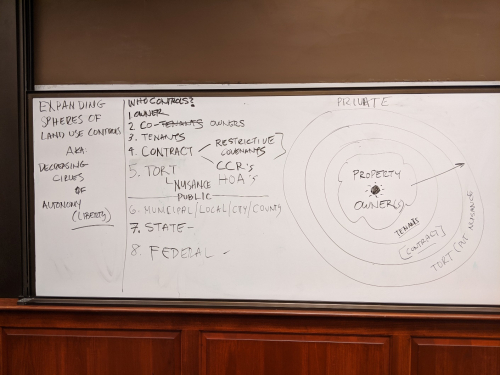 EXPANDING
SPHERES OF
LAND USE CONTROLS
AKA
DECREASING
CIRCLES
OF
AUTONOMY
(LIBERTY)
WHO CONTROLS?
1. OWNER
2. CO-TENANTS OWNERS
3. TENANTS
4. CONTRACT
RESTRICTIVE
COVENANTS
CCR's
HOA's
5. TORT
NUISANCE
PUBLIC
6. MUNICIPAL/LOCAL/CTY/COUNTY
7. STATE-
8. FEDERAL -
PRIVATE
PROPERTY
OWNER(S)
TENANTS
(CONTRACT)
TORT NUISANCE